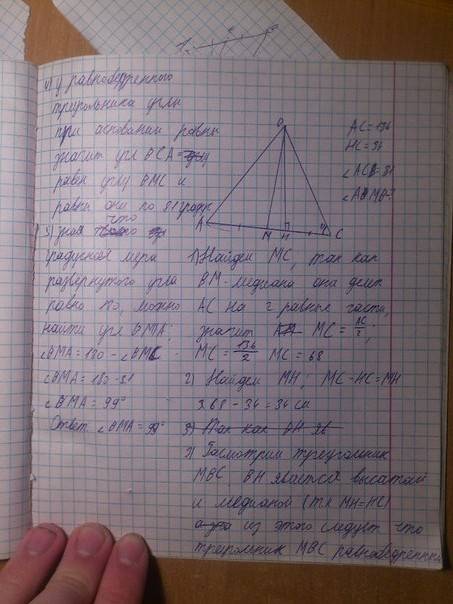 4) у равнобедренного
треугольника углы
при основании равны
значит угл BCA =
равен углу BMC и
равны они по 81 градус
5) зная что
градусная мера
развернутого угла
равно 180, можно
найти угл BMA;
∠BMA = 180 - ∠BMC
∠BMA = 180 - 81
∠BMA = 99°
Ответ: ∠BMA = 99°
B
A
M
H
C
AC = 136
HC = 34
∠ACB = 81
∠AMB - ?
1) Найдем MC, так как
BM - медиана она делит
AC на 2 равные части,
значит MC = AC/2;
MC = 136/2 MC = 68
2) Найдем MH, MC - HC = MH
68 - 34 = 34 см
3) Так как BH яв
3) Рассмотрим треугольник
MBC, BH является высотой
и медианой (тк MH = HC)
из этого следует что
треугольник MBC равнобедренный